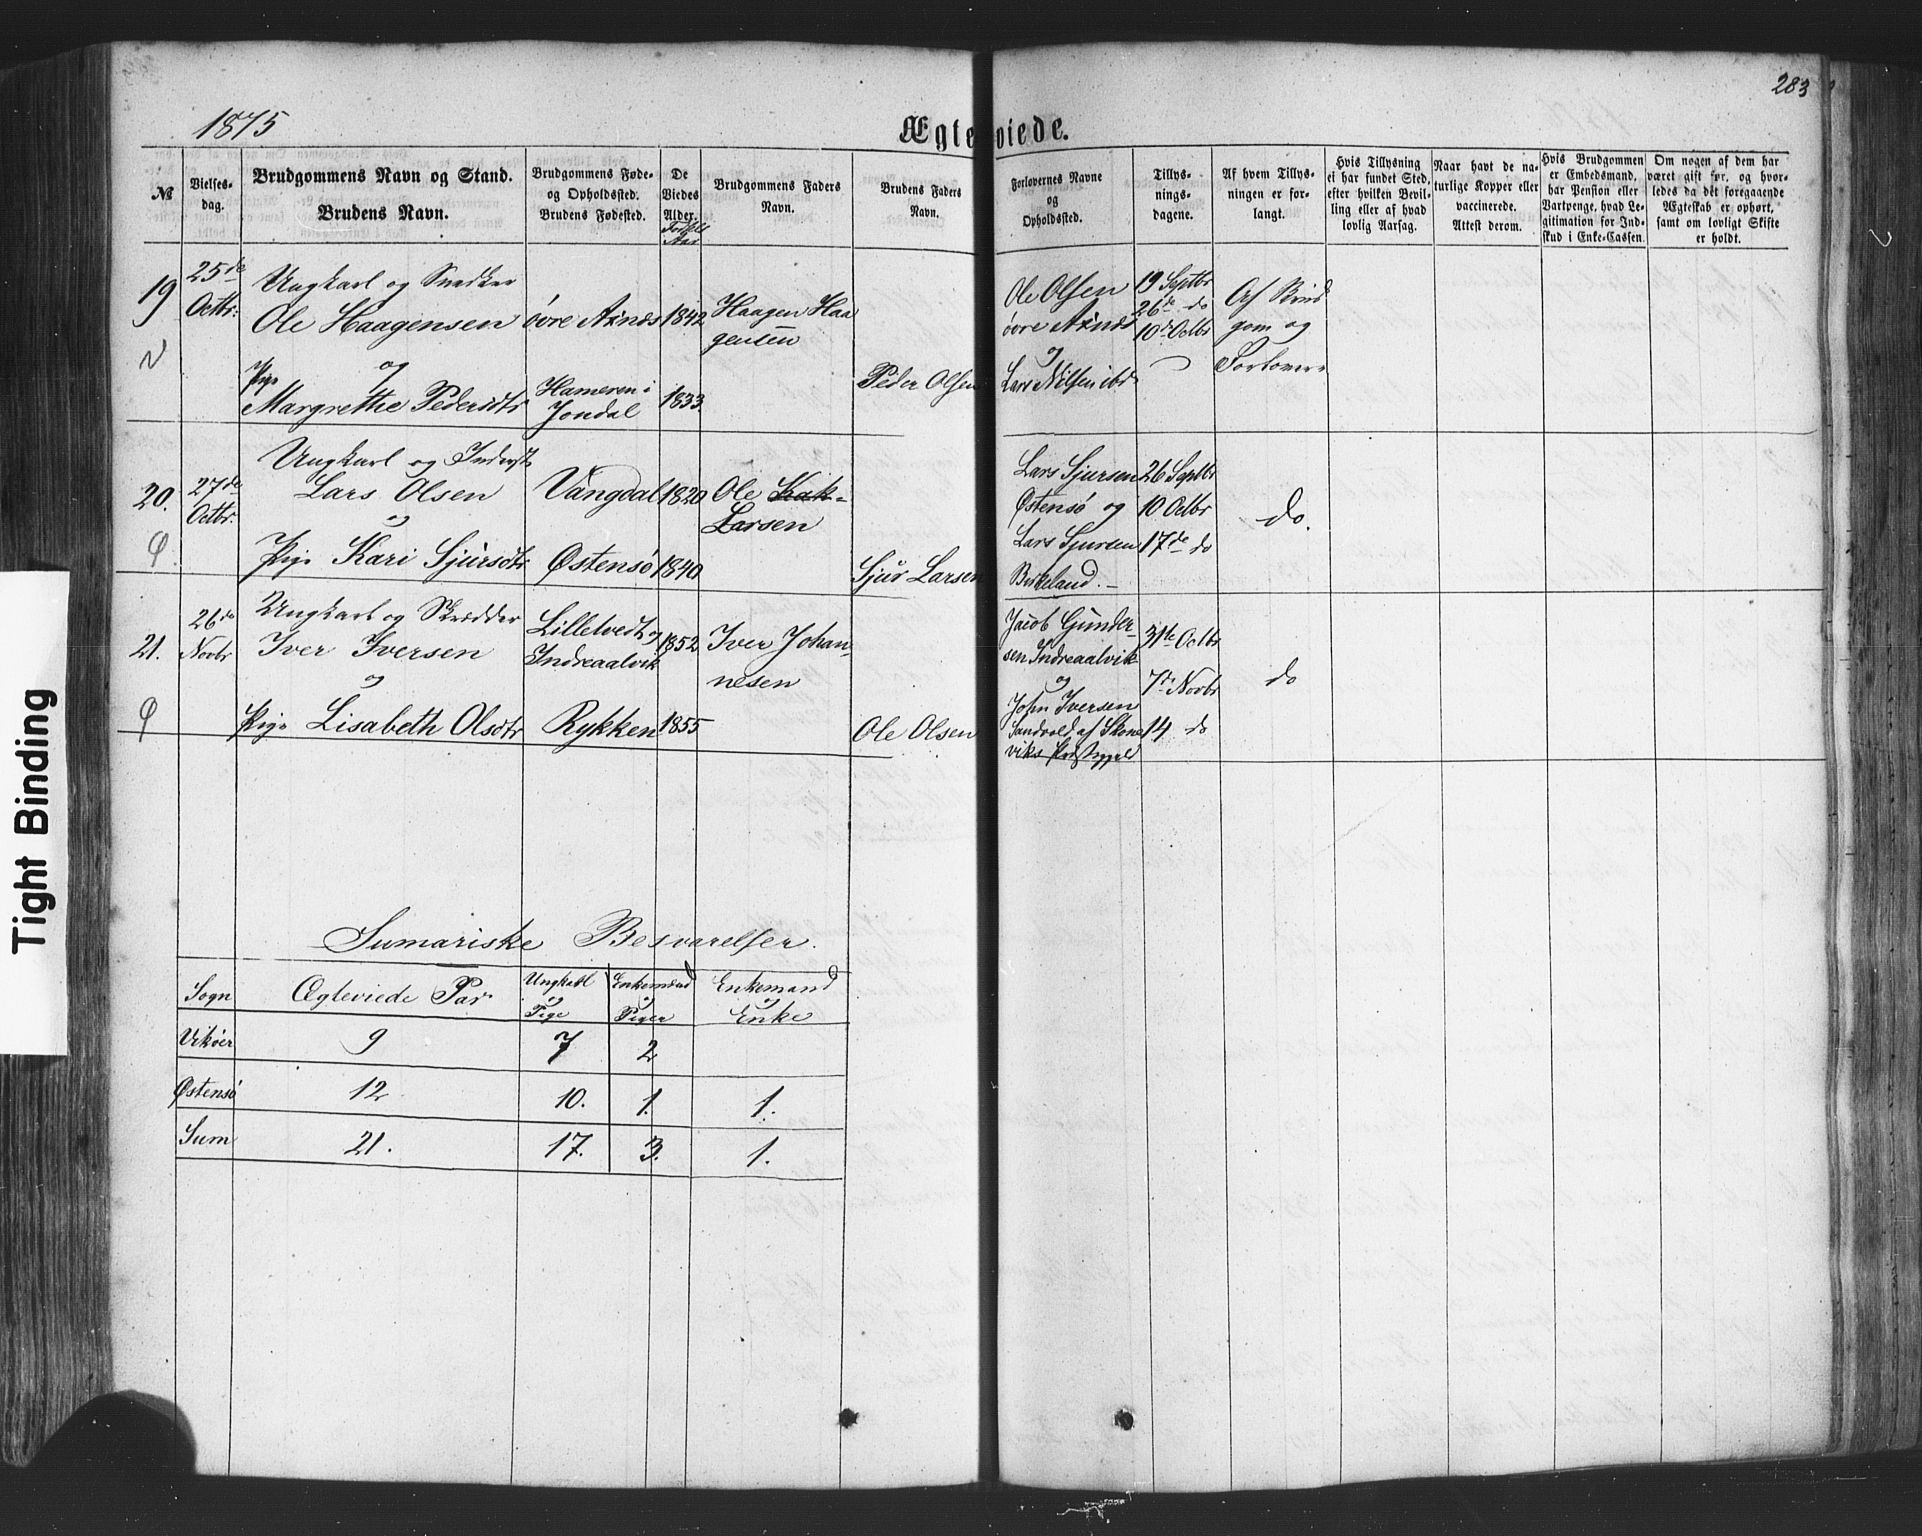 283
1875
Ægtevviede.
№
Vielses-
dag.
Brudgommens Navn og Stand.
Brudens Navn.
Brudgommens Føde-
og Opholdssted.
Brudens Fødested.
De
Viedes
Alder.
Brudgommens Faders
Navn.
Brudens Faders
Navn.
Forlovernes Navne
og
Opholdssted.
Tillys-
nings-
dagene.
Af hvem Tillys-
ningen er for-
langt.
Hvis Tillysning
ei har fundet Sted,
efter hvilken Bevil-
ling eller af hvad
lovlig Aarsag.
Naar havt de na-
turlige Kopper eller
vaccinerede.
Attest derom.
Hvis Brudgommen
er Embedsmand,
har Pension eller
Vartpenge, hvad Le-
gitimation for Ind-
skud i Enke-Cassen.
Om nogen af dem har
været gift før, og hvor-
ledes da det foregaaende
Ægteskab er ophørt,
samt om lovligt Skifte
er holdt.
19
25de
Octbr:
Ungkarl og Snedker
Ole Haagensen
og
Pige
Margrethe Pedersdtr
øvre Axnes
Hameren i
Jondal
1842
1833
Haagen Haa
gensen
Peder Olsen
Ole Olsen
øvre Axnes
og
Lars Nilsen ibd
19 Septbr
26de do
10de Octbr
Af Brud
gom og
Forlovere
20.
27de
Octbr:
Ungkarl og Inderst
Lars Olsen
og
Pige Kari Sjursdtr
Vangdal
Østensø
1820
1840
Ole Kak-
Larsen
Sjur Larsen
Lars Sjursen
Østensø og
Lars Sjursen
Birkeland.
26 Septbr
10 Octbr
17de do
do.
21.
26de
Novbr
Ungkarl og Skrædder
Iver Iversen
og
Pige Lisabeth Olsdtr
Lilletvedt og
Indreaalvik
Rykken
1852
1855
Iver Johan-
nesen
Ole Olsen
Jacob Gunder-
sen Indreaalvik
og
John Iversen
Sandvold af Skone
viks Præstegjeld
31te Octbr
7de Novbr
14 do
do
Sumariske Besvarelser.
Sogn
Ægteviede Par
Ungkarl
og
Pige
Enkemænd
og
Piger
Enkemand
og
Enke
Vikøer 9 7 2
Østensø 12 10. 1. 1.
Sum 21. 17. 3. 1.
Tight Binding